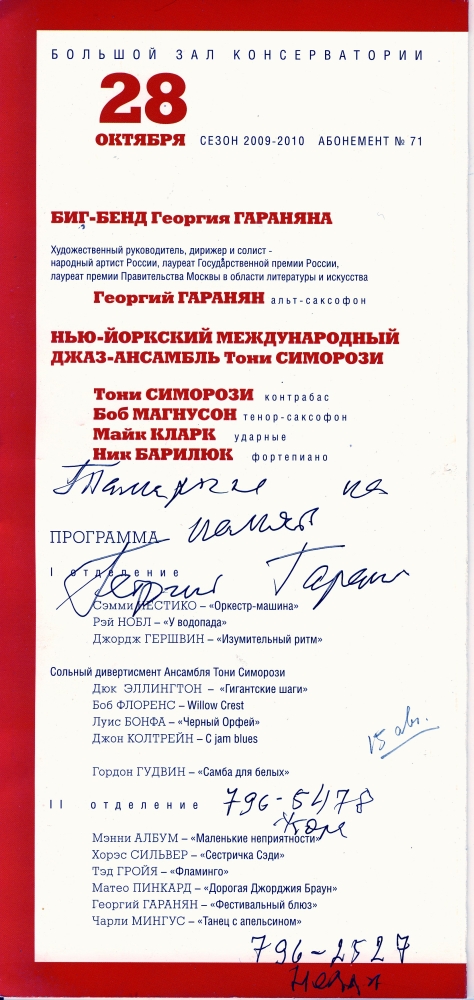 БОЛЬШОЙ ЗАЛ КОНСЕРВАТОРИИ
28
ОКТЯБРЯ СЕЗОН 2009-2010 АБОНЕМЕНТ № 71
БИГ-БЕНД Георгия ГАРАНЯНА
Художественный руководитель, дирижер и солист -
народный артист России, лауреат Государственной премии России,
лауреат премии Правительства Москвы в области литературы и искусства
Георгий ГАРАНЯН альт-саксофон
НЬЮ-ЙОРКСКИЙ МЕЖДУНАРОДНЫЙ
ДЖАЗ-АНСАМБЛЬ Тони СИМОРОЗИ
Тони СИМОРОЗИ контрабас
Боб МАГНУСОН тенор-саксофон
Майк КЛАРК ударные
Ник БАРИЛЮК фортепиано
на
ПРОГРАММА память
I отделение
Георгий Гаранян
Сэмми НЕСТИКО – «Оркестр-машина»
Рэй НОБЛ – «У водопада»
Джордж ГЕРШВИН – «Изумительный ритм»
Сольный дивертисмент Ансамбля Тони Симорози
Дюк ЭЛЛИНГТОН – «Гигантские шаги»
Боб ФЛОРЕНС – Willow Crest
Луис БОНФА – «Черный Орфей»
Джон КОЛТРЕЙН – C jam blues
15 авг.
Гордон ГУДВИН – «Самба для белых»
II отделение 796-5478
Мэнни АЛБУМ – «Маленькие неприятности»
Хорэс СИЛЬВЕР – «Сестричка Сэди»
Тэд ГРОЙЯ – «Фламинго»
Матео ПИНКАРД – «Дорогая Джорджия Браун»
Георгий ГАРАНЯН – «Фестивальный блюз»
Чарли МИНГУС – «Танец с апельсином»
796-2527